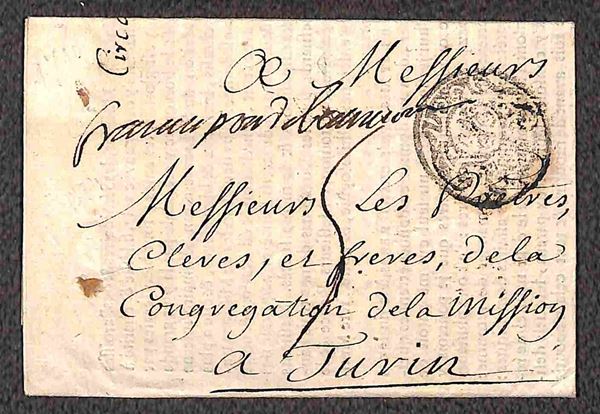 Circ
A Messieurs
franc au pon de beauvoisin
Messieurs Les Prêtres,
Clercs, et freres, de la
Congregation de la Mission
a Turin